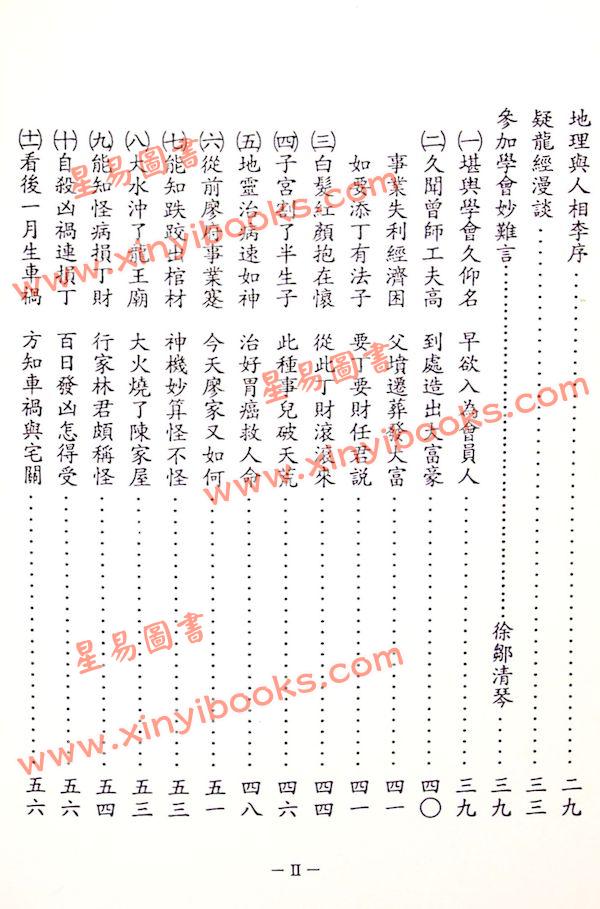 地理與人相李序……二九
疑龍經漫談……三三
參加學會妙難言……徐鄒清琴……三九
㈠堪輿學會久仰名 早欲入為會員人……三九
㈡久聞曾師工夫高 到處造出大富豪……四〇
事業失利經濟困 父墳遷葬發大富……四一
如要添丁有法子 要丁要財任君説……四一
㈢白髮紅顏抱在懷 從此丁財滾滾來……四四
㈣子宮割了半生子 此種事兒破天荒……四六
㈤地靈治病速如神 治好胃癌救人命……四八
㈥從前廖府事業蹇 今天廖家又如何……五一
㈦能知跌跤出棺材 神機妙算怪不怪……五三
㈧大水沖了龍王廟 大火燒了陳家屋……五三
㈨能知怪病損丁財 行家林君頗稱怪……五四
㈩自殺凶禍連損丁 百日發凶怎得受……五六
(十一)看後一月生車禍 方知車禍與宅關……五六
— II —
星易圖書
www.xinyibooks.com
星易圖書
www.xinyibooks.com
星易圖書
www.xinyibooks.com